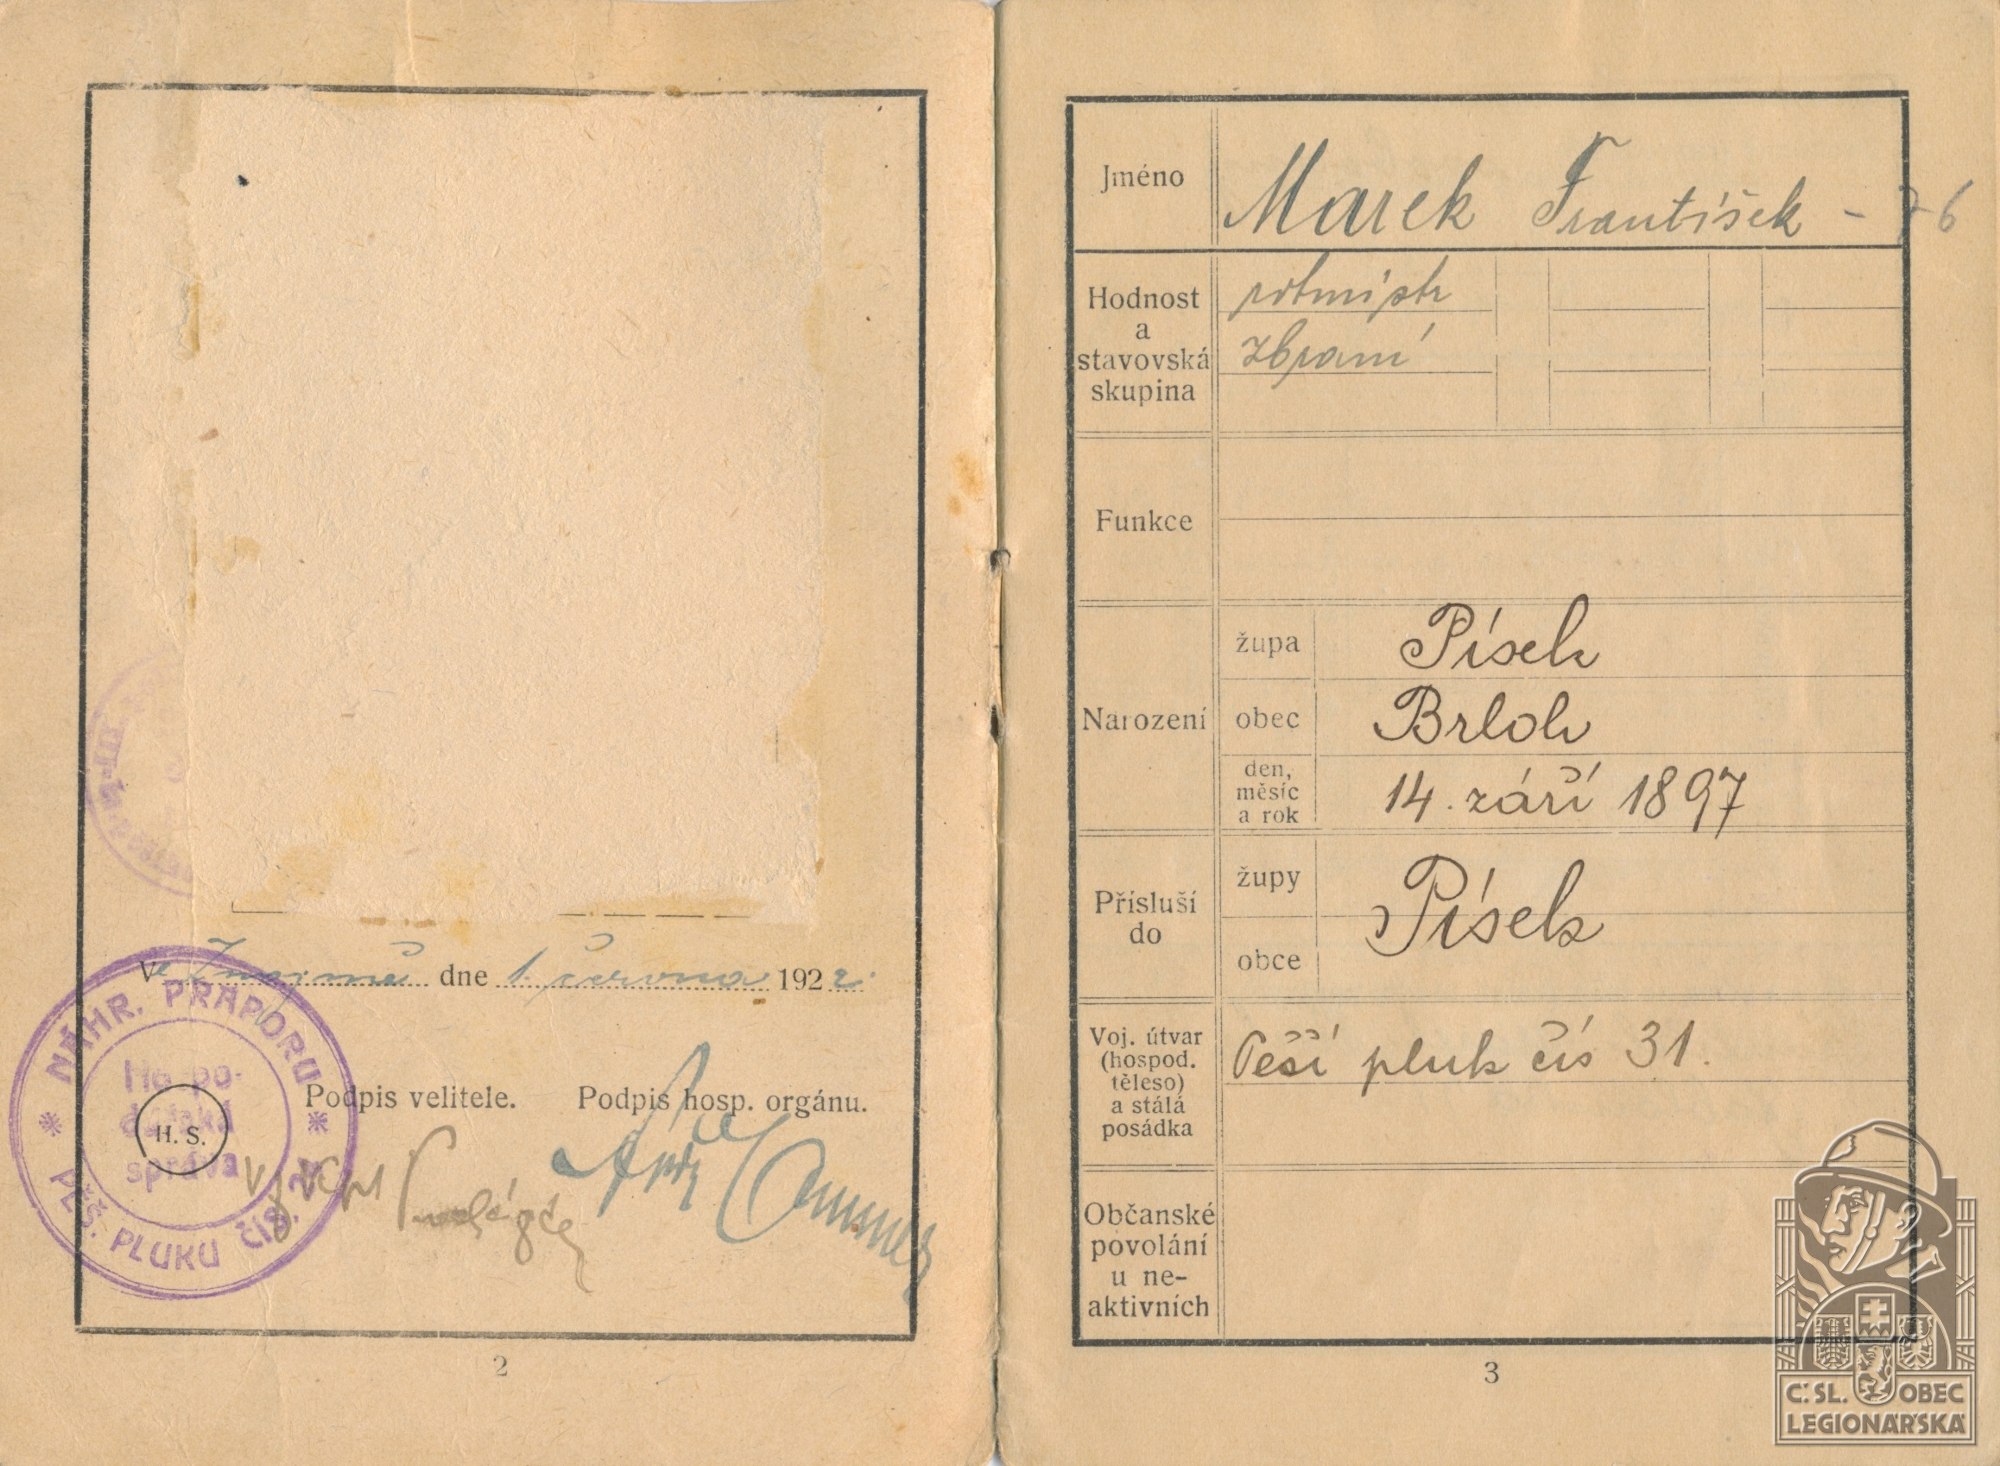 Ve Znojmě dne 1. června 1922.
NÁHR. PRAPORU
PĚŠ. PLUKU ČÍS.
Ho po-
dářská
správa
H. S.
Podpis velitele. Podpis hosp. orgánu.
2
Jméno Marek František - 76
Hodnost
a
stavovská
skupina
rotmistr
zbraní
Funkce
Narození
župa Písek
obec Brloh
den,
měsíc
a rok
14. září 1897
Přísluší
do
župy
obce
Písek
Voj. útvar
(hospod.
těleso)
a stálá
posádka
Pěší pluk čís 31.
Občanské
povolání
u ne-
aktivních
3
Č. SL. OBEC
LEGIONÁŘSKÁ